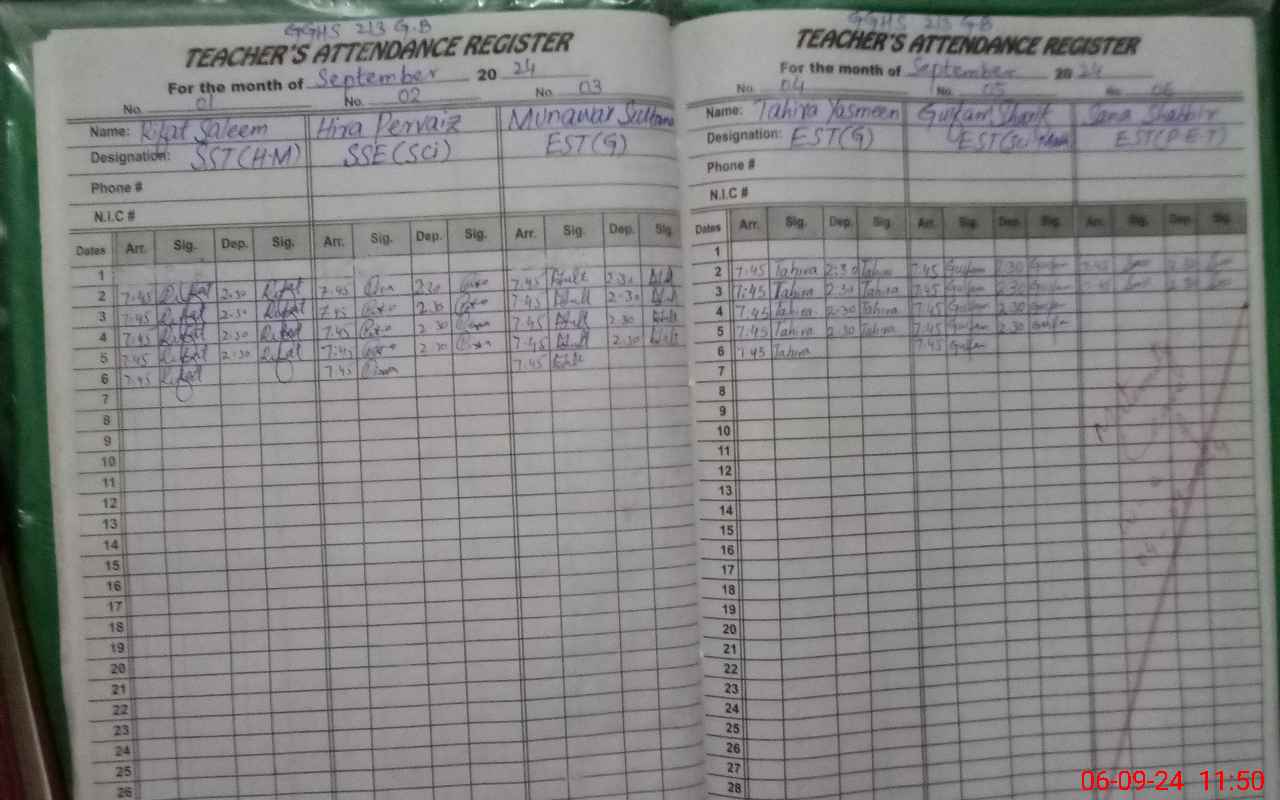 GGHS 213 G.B
TEACHER'S ATTENDANCE REGISTER
For the month of September 20 24
No. 01 No. 02 No. 03
Name: Rifat Saleem Hira Pervaiz Munawar Sultana
Designation: SST(H.M) SSE(Sci) EST(G)
Phone #
N.I.C #
Dates Arr. Sig. Dep. Sig. Arr. Sig. Dep. Sig. Arr. Sig. Dep. Sig.
1
2 7:45 Rifat 2:30 Rifat 7:45 2:30 7:45 2:30
3 7:45 Rifat 2:30 Rifat 7:45 2:30 7:45 2:30
4 7:45 Rifat 2:30 Rifat 7:45 2:30 7:45 2:30
5 7:45 Rifat 2:30 Rifat 7:45 2:30 7:45 2:30
6 7:45 Rifat 7:45 7:45
7
8
9
10
11
12
13
14
15
16
17
18
19
20
21
22
23
24
25
26
GGHS 213 G.B
TEACHER'S ATTENDANCE REGISTER
For the month of September 20 24
No. 04 No. 05 No. 06
Name: Tahira Yasmeen Gulfam Sharif Sana Shabbir
Designation: EST(G) EST(Sci EST(P.E.T)
Phone #
N.I.C #
Dates Arr. Sig. Dep. Sig. Arr. Sig. Dep. Sig. Arr. Sig. Dep. Sig.
1
2 7:45 Tahira 2:30 Tahira 7:45 Gulfam 2:30 Gulfam 7:45 2:30
3 7:45 Tahira 2:30 Tahira 7:45 Gulfam 2:30 Gulfam 7:45 2:30
4 7:45 Tahira 2:30 Tahira 7:45 Gulfam 2:30 Gulfam
5 7:45 Tahira 2:30 Tahira 7:45 Gulfam 2:30 Gulfam
6 7:45 Tahira 7:45 Gulfam
7
8
9
10
11
12
13
14
15
16
17
18
19
20
21
22
23
24
25
26
27
28
06-09-24 11:50